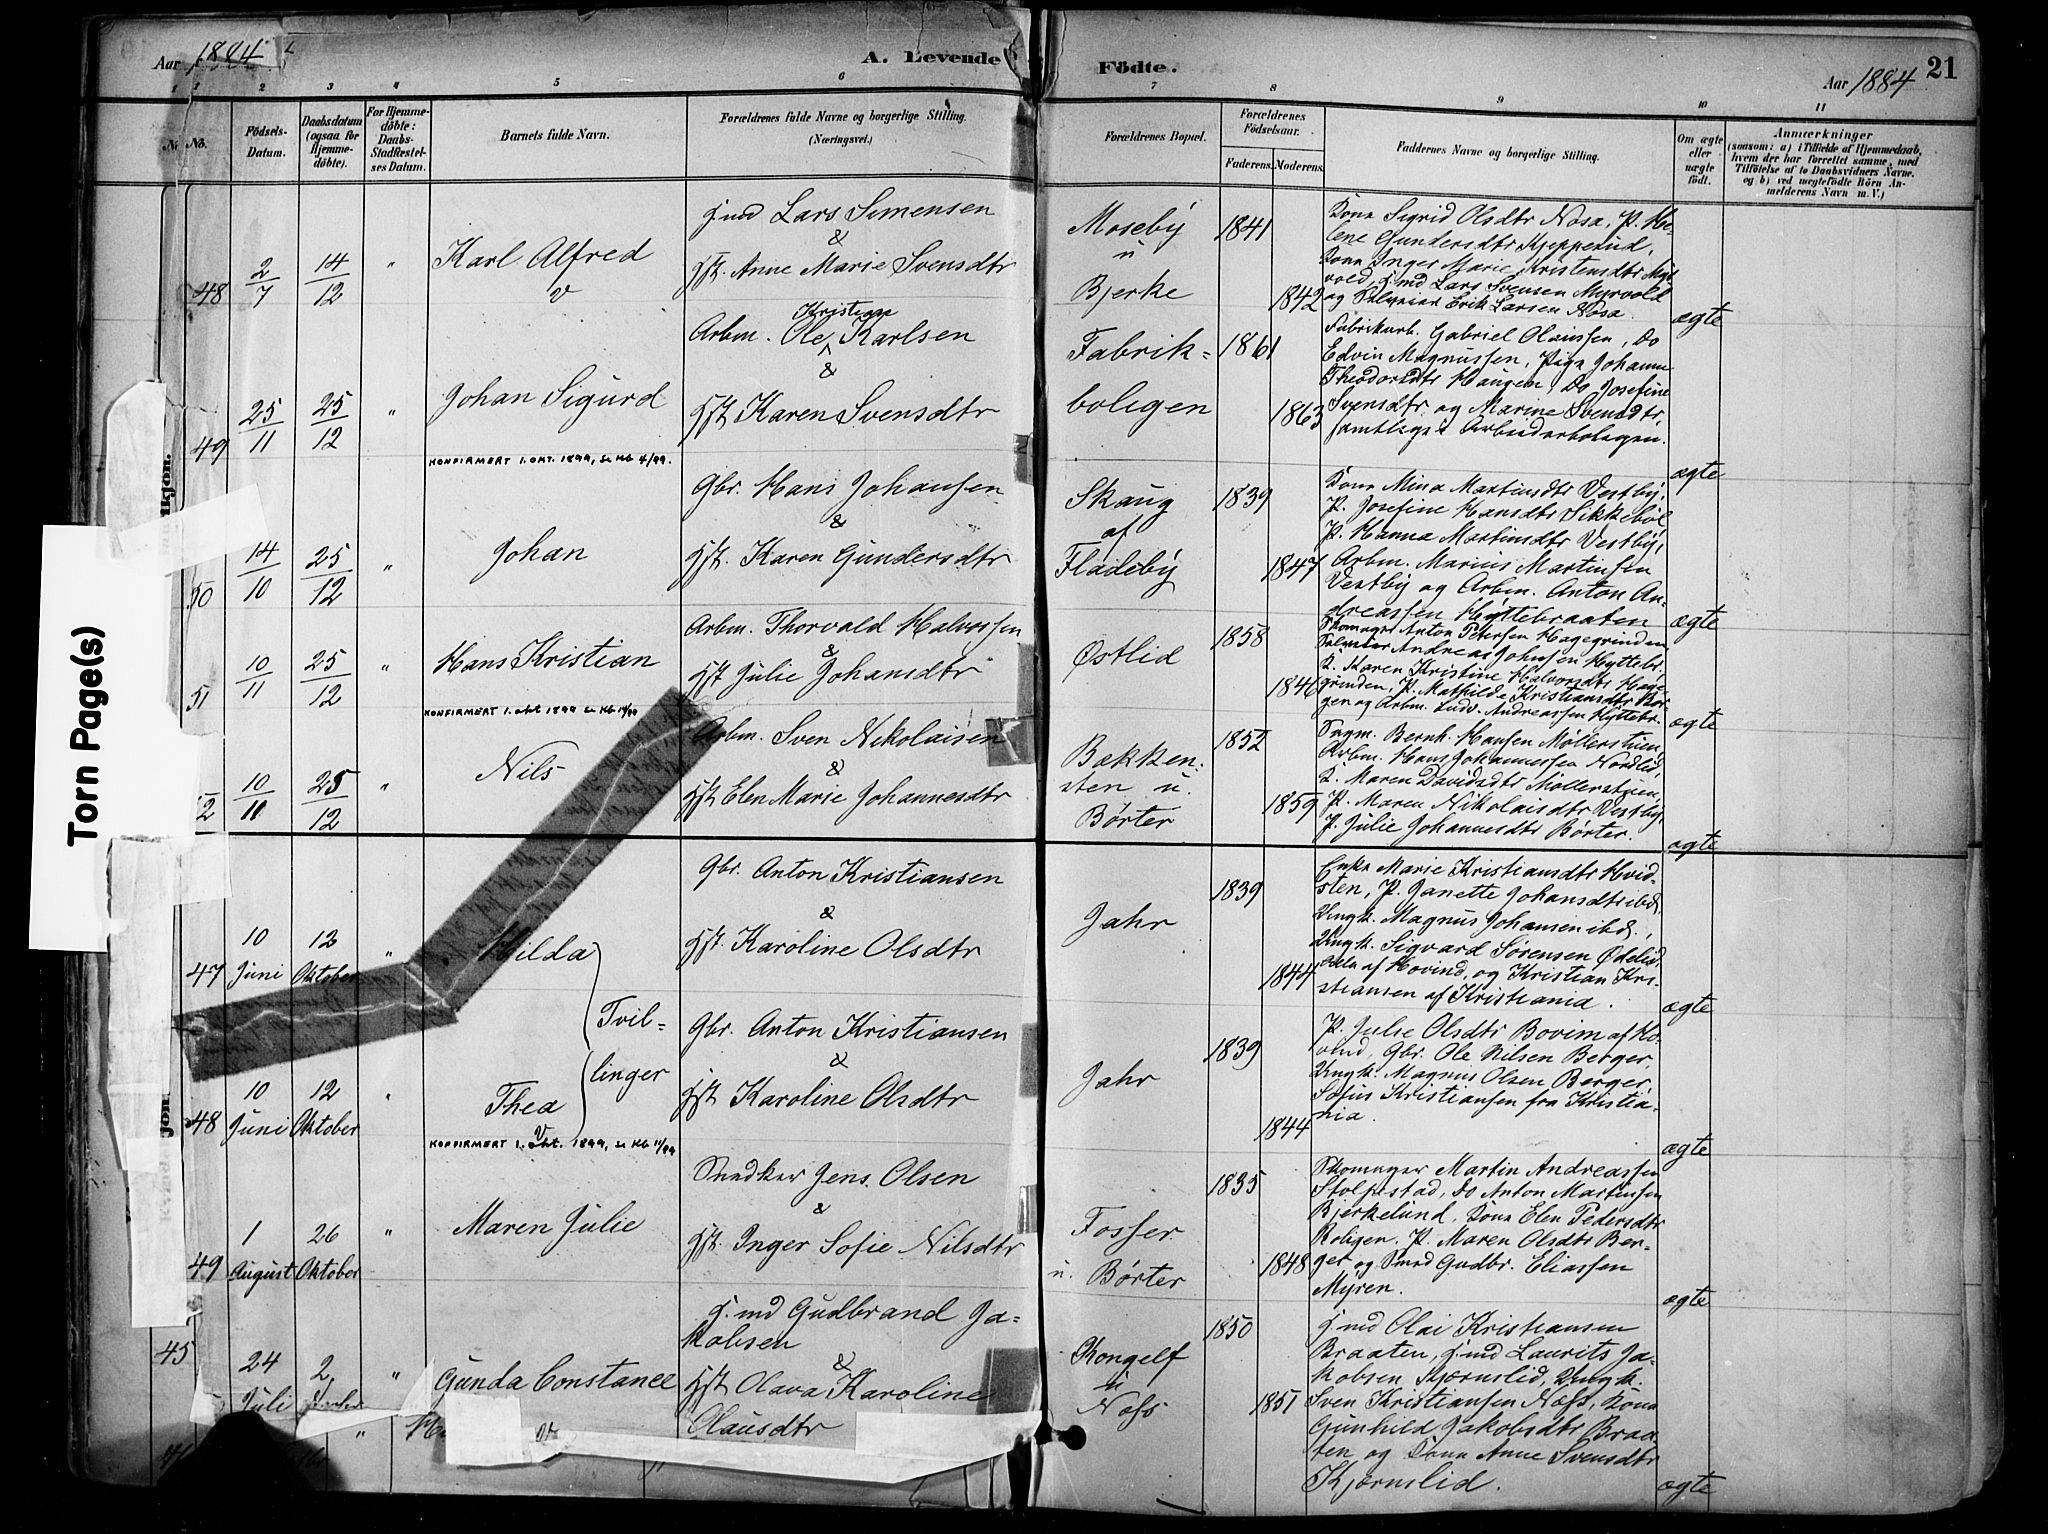 Aar 1884
A. Levende
Födte.
Aar 1884
21
1 1 2 3 4 5 6 7 8 9 10 11
No.
Födsels-
Datum.
Daabsdatum
(ogsaa for
Hjemme-
döbte).
For Hjemme-
döbte:
Daabs-
Stadfæstel-
ses Datum.
Barnets fulde Navn.
Forældrenes fulde Navne og borgerlige Stilling.
(Næringsvei.)
Forældrenes Bopæl.
Forældrenes
Födselsaar.
Faderens.
Moderens.
Faddernes Navne og borgerlige Stilling.
Om ægte
eller
uægte
födt.
Anmærkninger
(saasom: a) i Tilfælde af Hjemmedaab,
hvem der har forrettet samme, med
Tilföielse af to Daabsvidners Navne,
og b) ved uægtefödte Börn An-
melderens Navn m. V.)
48
2/7
14/12
"
Karl Alfred
v
Gmd Lars Simensen
&
Hst. Anne Marie Svensdtr
Moseby
u
Bjerke
1841
1842
Kona Sigrid Olsdtr Nosa, P. He-
lene Gundersdtr Kjepperud,
Kona Inger Marie Kristensdtr Myr-
vold, Gmd Lars Svensen Myrvold
og Erik Larsen Nosa.
ægte
49
25/11
25/12
"
Johan Sigurd
KONFIRMERT 1. OKT. 1899, se Kb 4/99.
Kristian
Arbm. Ole Karlsen
&
Hst Karen Svensdtr
Fabrik=
boligen
1861
1863
Fabrikarb. Gabriel Olaussen, Do
Edvin Magnussen, Pige Johanne
Theodorsdtr Haugen, Do Josefine
Svensdtr og Marine Svensdtr,
samtlige i Arbeiderboligen.
ægte
50
14/10
25/12
"
Johan
Gbr. Hans Johansen
&
Hst. Karen Gundersdtr
Skaug
af
Fladeby
1839
1847
Kona Mina Martinsdtr Vestby,
P. Josefine Hansdtr Sikkebøl
P. Hanna Martinsdtr Vestby,
Arbm. Marius Martinsen
Vestby og Arbm. Anton An-
dreassen Hyttebraaten
ægte
51
10/11
25/12
"
Hans Kristian
KONFIRMERT 1. okt 1899 se Kb 14/99
Arbm. Thorvald Halvorsen
&
Hst Julie Johansdtr
Østlid
1858
1846
Skomager Anton Petersen Hagegrinden
Andreas Johnsen Hyttebr.
K. Karen Kristine Halvorsdtr Hage-
grinden, P. Mathilde Kristiansdtr Bør-
ger og Arbm. Ludv. Andreassen Hyttebr.
ægte
52
10/11
25/12
"
Nils
Arbm. Sven Nikolaisen
&
Hst Elen Marie Johannesdtr
Bækken-
sten u.
Børter
1852
1859
Bernh. Hansen Møllerstuen,
Arbm. Hans Johannessen Nordlid,
K. Maren Davidsdtr Møllerstuen,
P. Maren Nikolaisdtr Vestby,
P. Julie Johannesdtr Børter.
ægte
47
10
Juni
12
Oktober
"
Hilda
Gbr. Anton Kristiansen
&
Hst. Karoline Olsdtr
Jahr
1839
1844
Enke Marie Kristiansdtr Hvid-
sten, P. Janette Johansdtr ibd.,
Ungk. Magnus Johansen ibd.,
Ungk. Sigvard Sørensen Ødelid,
alle af Hovind, og Kristian Kri-
stiansen af Kristiania.
ægte
Tvil=
linger
48
10
Juni
12
Oktober
"
Thea
v
KONFIRMERT 1. okt. 1899, se Kb 11/99
Gbr. Anton Kristiansen
&
Hst Karoline Olsdtr
Jahr
1839
1844
P. Julie Olsdtr Bovim af Ho-
vind, Gbr. Ole Nilsen Berger,
Ungk. Magnus Olsen Berger,
Sofus Kristiansen fra Kristia-
nia.
ægte
49
1
August
26
Oktober
"
Maren Julie
Snedker Jens Olsen
&
Hst. Inger Sofie Nilsdtr
Fosser
u. Børter
1835
1848
Skomager Martin Andreassen
Stolpestad, Do Anton Martinsen
Bjerkelund, Kona Elen Pedersdtr
Boligen, P. Maren Olsdtr Ber-
ger og Smed Gudbr. Eliassen
Myren.
ægte
45
24
Juli
2
"
Gunda Constance
G.md Gudbrand Ja-
kobsen
&
Hst Olava Karoline
Olausdtr
Kongelf
u
Næss
1850
1851
G.md Olai Kristiansen
Braaten, G.md Laurits Ja-
kobsen Kjærnslid, Ungk.
Sven Kristiansen Næss, Kona
Gunhild Jakobsdtr Braa-
ten og Kona Anne Svensdtr
Kjærnslid.
ægte
Torn Page(s)